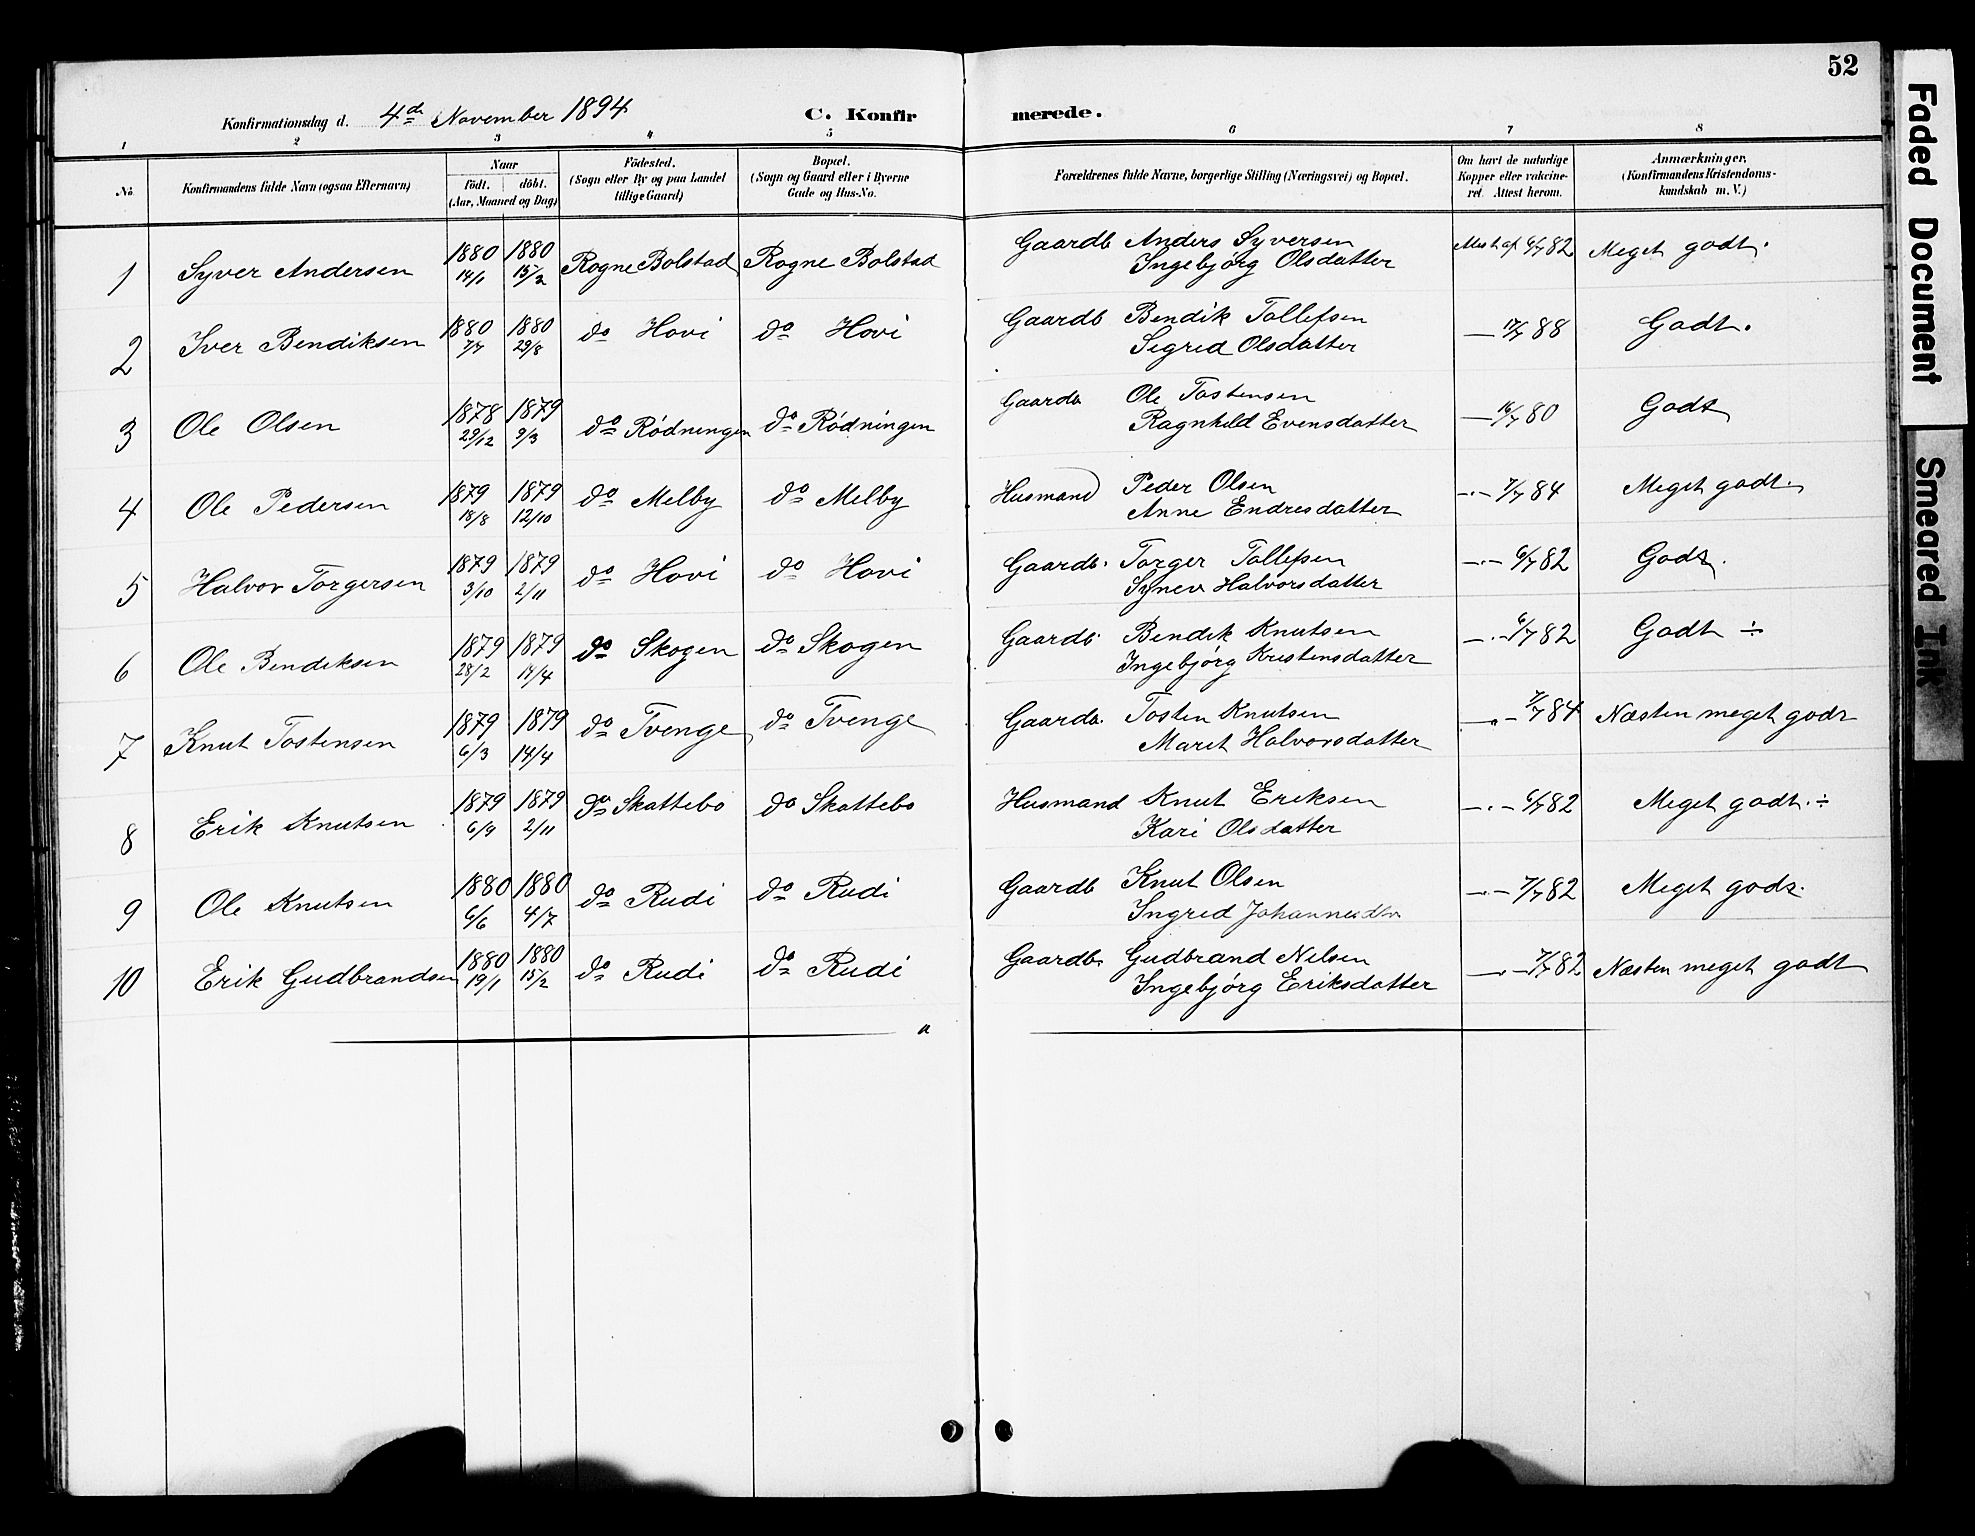 52
Konfirmationsdag d. 4de November 1894 C. Konfirmerede.
1 2 3 4 5 6 7 8
No. Konfirmandens fulde Navn (ogsaa Efternavn) Naar födt. döbt. (Aar, Maaned og Dag) Födested. (Sogn eller By og paa Landet tillige Gaard) Bopæl. (Sogn og Gaard eller i Byerne Gade og Hus-No. Forældrenes fulde Navne, borgerlige Stilling (Næringsvei) og Bopæl. Om havt de naturlige Kopper eller vakcineret. Attest herom. Anmærkninger. (Konfirmandens Kristendomskundskab m. V.)
1 Syver Andersen 1880 14/1 1880 15/2 Rogne Bolstad Rogne Bolstad Gaardb Anders Syversen 6/7 82 Meget godt.
Ingebjørg Olsdatter
2 Iver Bendiksen 1880 7/7 1880 29/8 do Hovi do Hovi Gaardb Bendik Tollefsen — 17/7 88 Godt.
Sigrid Olsdatter
3 Ole Olsen 1878 29/12 1879 9/3 do Rødningen do Rødningen Gaardb Ole Tostensen — 16/7 80 Godt
Ragnhild Evensdatter
4 Ole Pedersen 1879 18/8 1879 12/10 do Melby do Melby Husmand Peder Olsen —.— 7/7 84 Meget godt.
Anne Endresdatter
5 Halvor Torgersen 1879 3/10 1879 2/11 do Hovi do Hovi Gaardb. Torger Tollefsen —.— 6/7 82 Godt.
Synev Halvorsdatter
6 Ole Bendiksen 1879 28/2 1879 14/4 do Skogen do Skogen Gaardb. Bendik Knutsen —.— 6/7 82 Godt ÷
Ingebjørg Kristensdatter
7 Knut Tostensen 1879 6/3 1879 14/4 do Tvenge do Tvenge Gaardb. Tosten Knutsen —.— 7/7 84 Næsten meget godt
Marit Halvorsdatter
8 Erik Knutsen 1879 6/9 1879 2/11 do Skattebo do Skattebo Husmand Knut Eriksen —.— 6/7 82 Meget godt. ÷
Kari Olsdatter
9 Ole Knutsen 1880 6/6 1880 4/7 do Rudi do Rudi Gaardb Knut Olsen —.— 7/7 82 Meget godt.
Ingrid Johannesdtr
10 Erik Gudbrandsen 1880 19/1 1880 15/2 do Rudi do Rudi Gaardb. Gudbrand Nilsen —.— 7/7 82 Næsten meget godt
Ingebjørg Eriksdatter
Faded Document
Smeared Ink